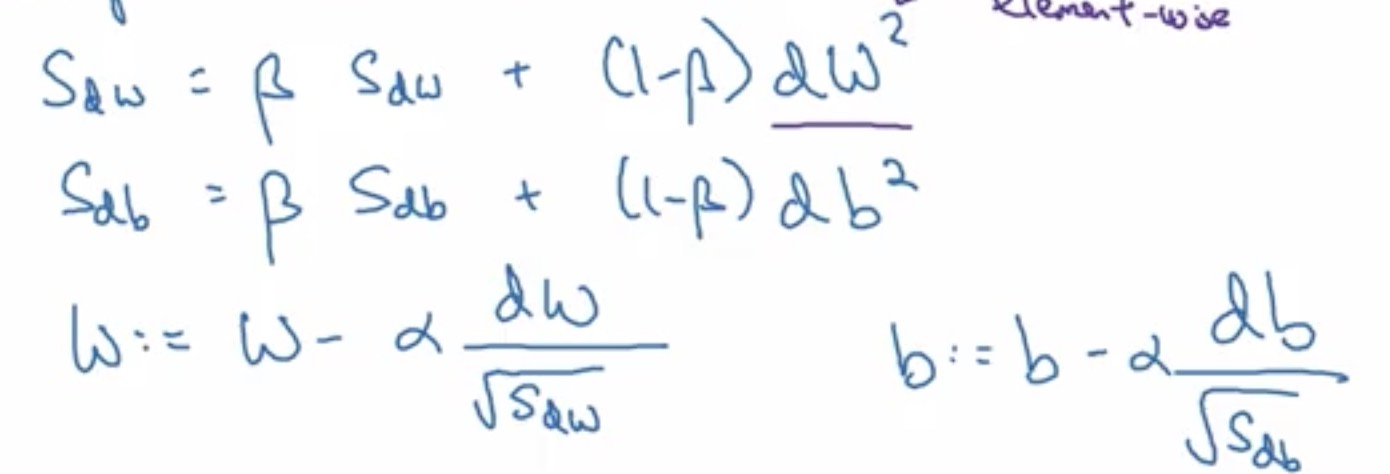 element-wise
S_dw = β S_dw + (1-β) dW²
S_db = β S_db + (1-β) db²
W := W - α dW / √S_dw    b := b - α db / √S_db